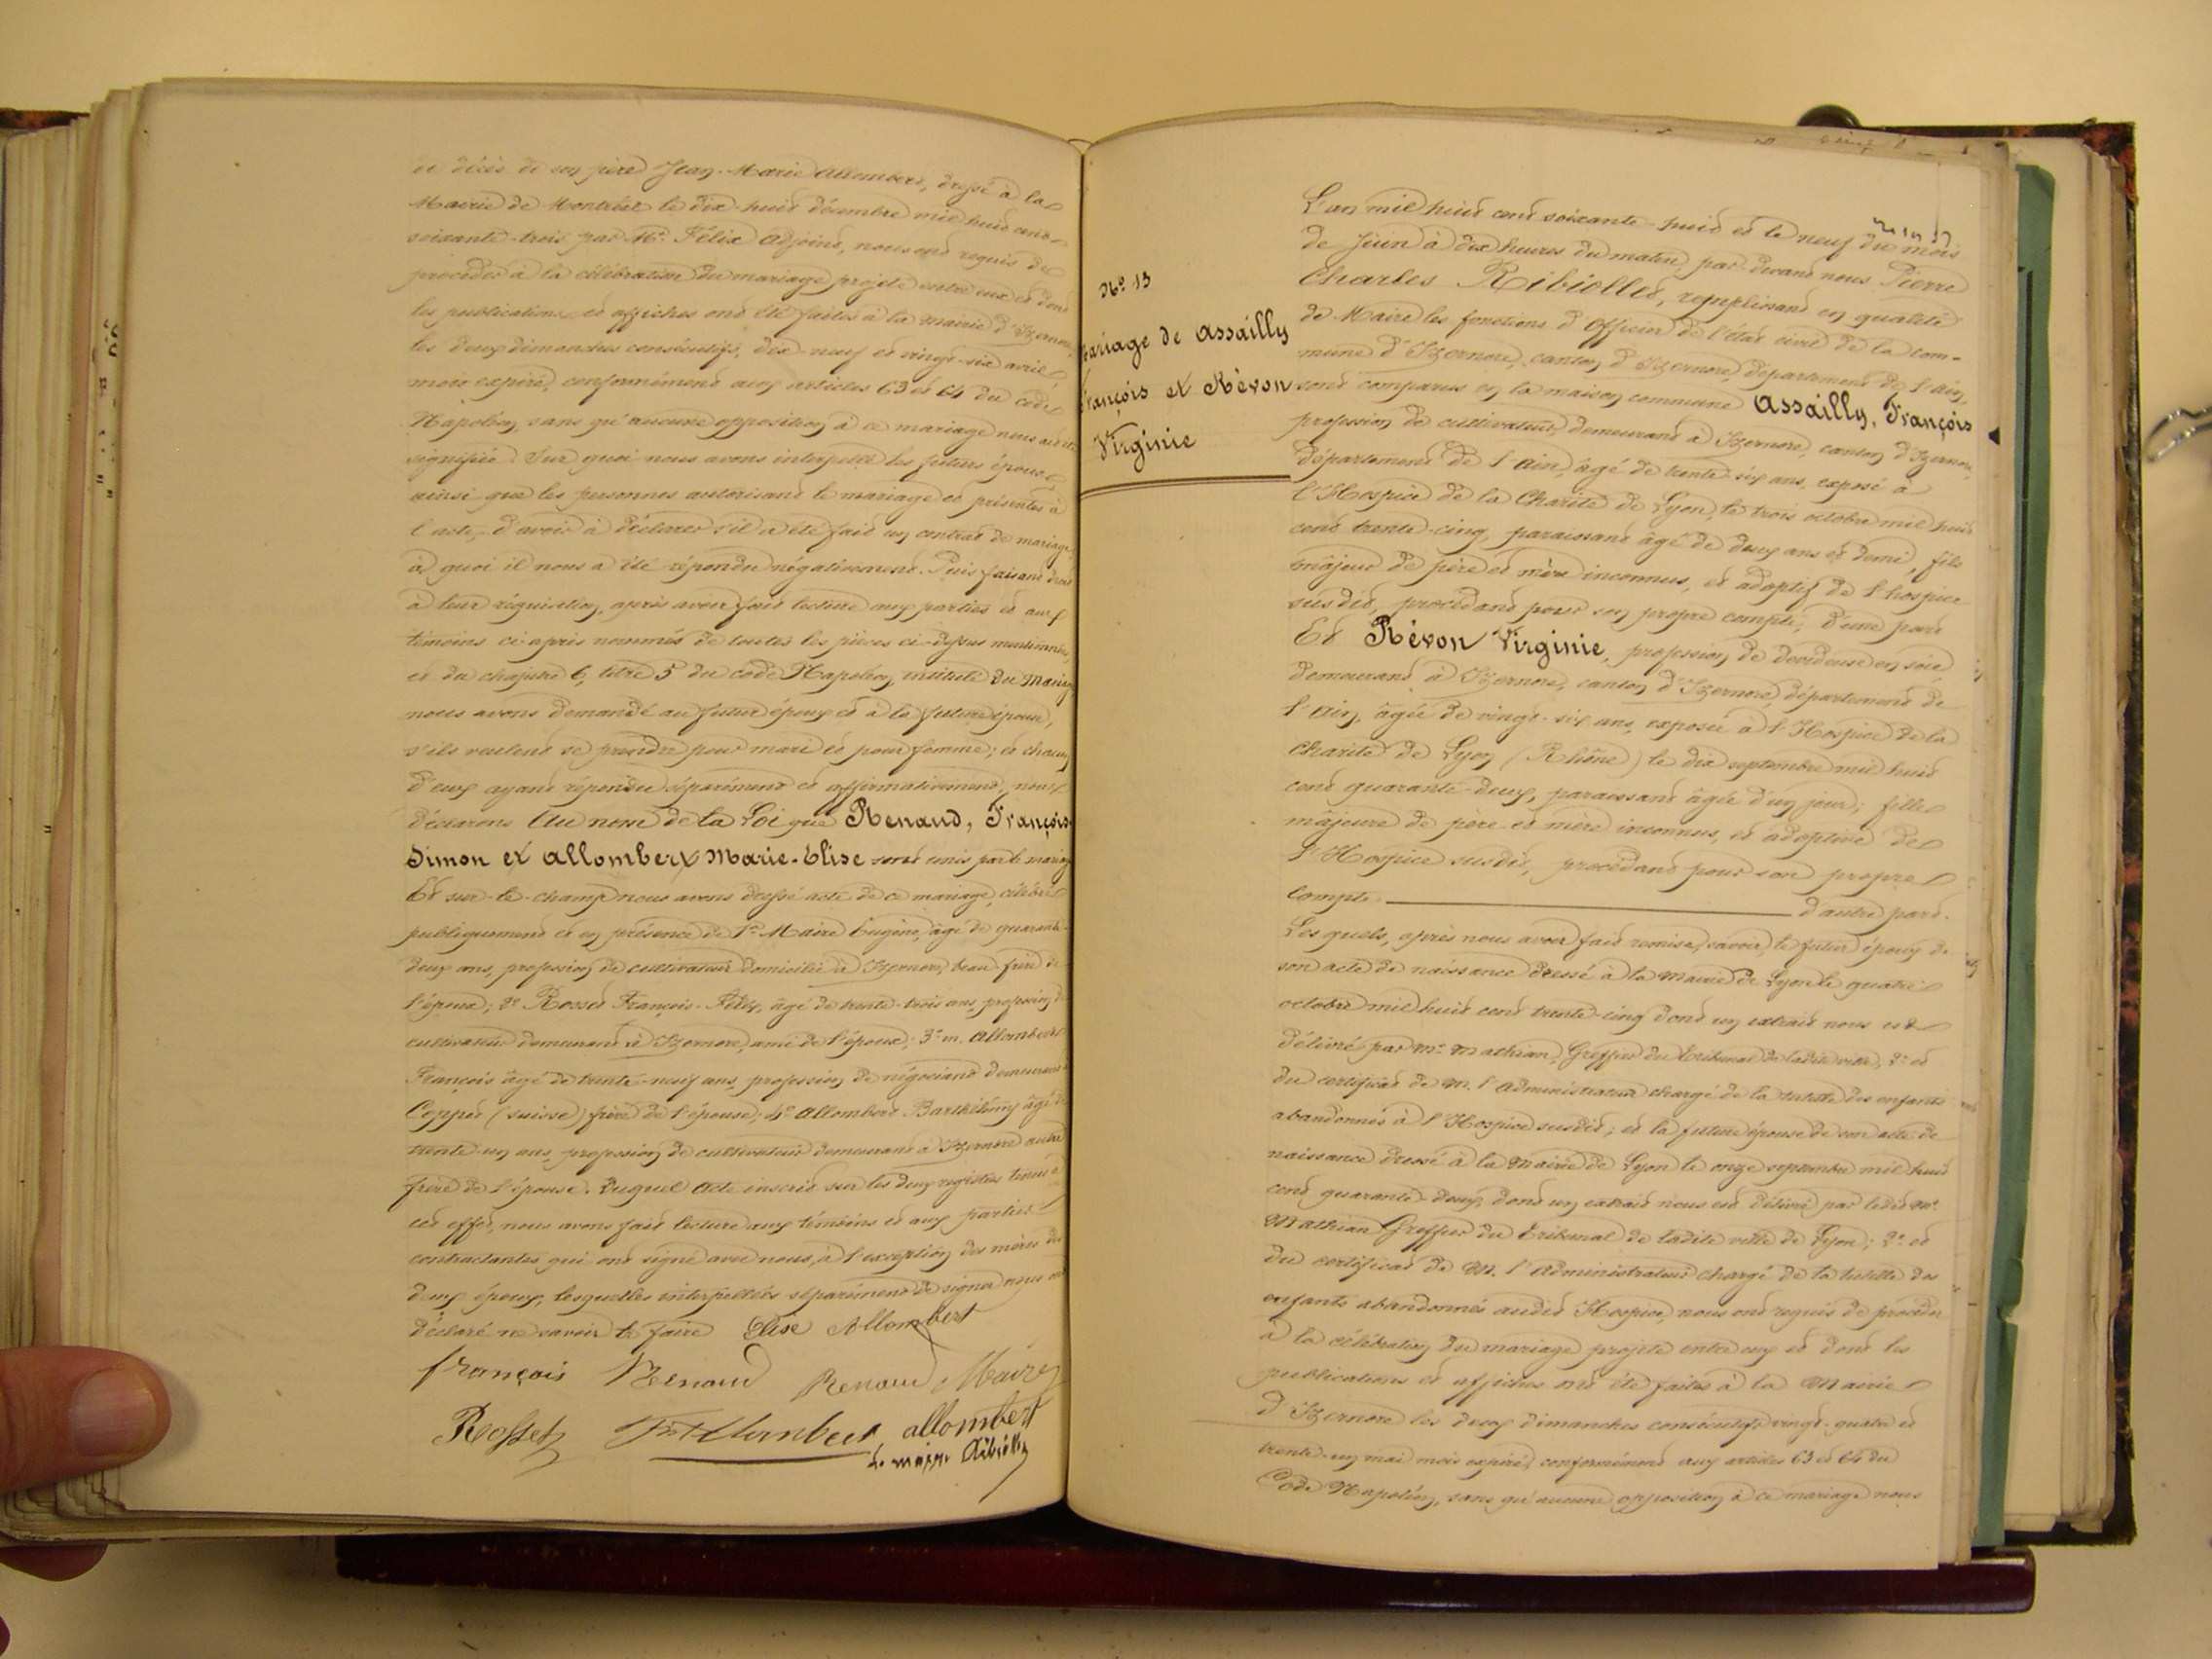 de décès de son père Jean-Marie Allombert, dressé à la
Mairie de Montréal le dix-huit décembre mil huit cent
soixante-trois par Mr. Félix adjoint, nous ont requis de
procéder à la célébration du mariage projeté entre eux et dont
les publications et affiches ont été faites à la mairie d'Izernore,
les deux dimanches consécutifs, dix-neuf et vingt-six avril
mois expiré, conformément aux articles 63 et 64 du code
Napoléon, sans qu'aucune opposition à ce mariage nous ait été
signifiée. Sur quoi nous avons interpellé les futurs époux
ainsi que les personnes autorisant le mariage et présentes à
l'acte, d'avoir à déclarer s'il a été fait un contrat de mariage,
à quoi il nous a été répondu négativement. Puis faisant droit
à leur réquisition, après avoir fait lecture aux parties et aux
témoins ci-après nommés de toutes les pièces ci-dessus mentionnées,
et du chapitre 6, titre 5 du code Napoléon, intitulé Du Mariage
nous avons demandé au futur époux et à la future épouse,
s'ils veulent se prendre pour mari et pour femme; et chacun
d'eux ayant répondu séparément et affirmativement, nous
déclarons Au nom de la Loi que Renaud, François
Simon et Allombert Marie-Elise sont unis par le mariage
Et sur-le-champ nous avons dressé acte de ce mariage, célébré
publiquement et en présence de 1° Maire Eugène, âgé de quarante-
deux ans, profession de cultivateur domicilié à Izernore, beau-frère de
l'époux; 2° Rosset François-Félix, âgé de trente-trois ans, profession de
cultivateur demeurant à Izernore, ami de l'époux; 3° m. Allombert
François âgé de trente-neuf ans, profession de négociant demeurant à
Coppet (suisse) frère de l'épouse; 4° Allombert Barthélemy âgé de
trente-un ans, profession de cultivateur demeurant à Izernore autre
frère de l'épouse. Duquel acte inscrit sur les deux registres tenus à
cet effet, nous avons fait lecture aux témoins et aux parties
contractantes qui ont signé avec nous, à l'exception des mères des
deux époux, lesquelles interpellées séparément de signer nous ont
déclaré ne savoir le faire Elise Allombert
françois Renaud Renaud Maire
Rosset Fs Allombert allombert
Le maire Ribiollet
N° 13
Mariage de Assailly
François et Révon
Virginie
L'an mil huit cent soixante-huit et le neuf du mois
de Juin à dix heures du matin, par-devant nous Pierre
Charles Ribiollet, remplissant en qualité
de Maire les fonctions d'Officier de l'état civil de la com-
mune d'Izernore, canton d'Izernore, département de l'Ain,
sont comparus en la maison commune Assailly, François
profession de cultivateur, demeurant à Izernore, canton d'Izernore,
département de l'Ain, âgé de trente-six ans, exposé à
l'Hospice de la Charité de Lyon, le trois octobre mil huit
cent trente-cinq, paraissant âgé de deux ans et demi, fils
majeur de père et mère inconnus, et adoptif de l'hospice
susdit, procédant pour son propre compte; d'une part
Et Révon Virginie, profession de dévideuse en soie
demeurant à Izernore, canton d'Izernore, département de
l'Ain, âgée de vingt-six ans, exposée à l'Hospice de la
Charité de Lyon (Rhône) le dix septembre mil huit
cent quarante-deux, paraissant âgée d'un jour; fille
majeure de père et mère inconnus, et adoptive de
l'Hospice susdit, procédant pour son propre
compte d'autre part.
Lesquels, après nous avoir fait remise, savoir, le futur époux de
son acte de naissance dressé à la mairie de Lyon le quatre
octobre mil huit cent trente-cinq dont un extrait nous est
délivré par Mr. Mathian, Greffier du Tribunal de ladite ville, 2° et
du certificat de M. l'Administrateur chargé de la tutelle des enfants
abandonnés à l'Hospice susdit; et la future épouse de son acte de
naissance dressé à la Mairie de Lyon le onze septembre mil huit
cent quarante-deux, dont un extrait nous est délivré par ledit Mr.
Mathian Greffier du Tribunal de ladite ville de Lyon; 2° et
du certificat de M. l'Administrateur chargé de la tutelle des
enfants abandonnés audit Hospice, nous ont requis de procéder
à la célébration du mariage projeté entre eux et dont les
publications et affiches ont été faites à la Mairie
d'Izernore les deux dimanches consécutifs vingt-quatre et
trente-un mai mois expiré, conformément aux articles 63 et 64 du
Code Napoléon, sans qu'aucune opposition à ce mariage nous